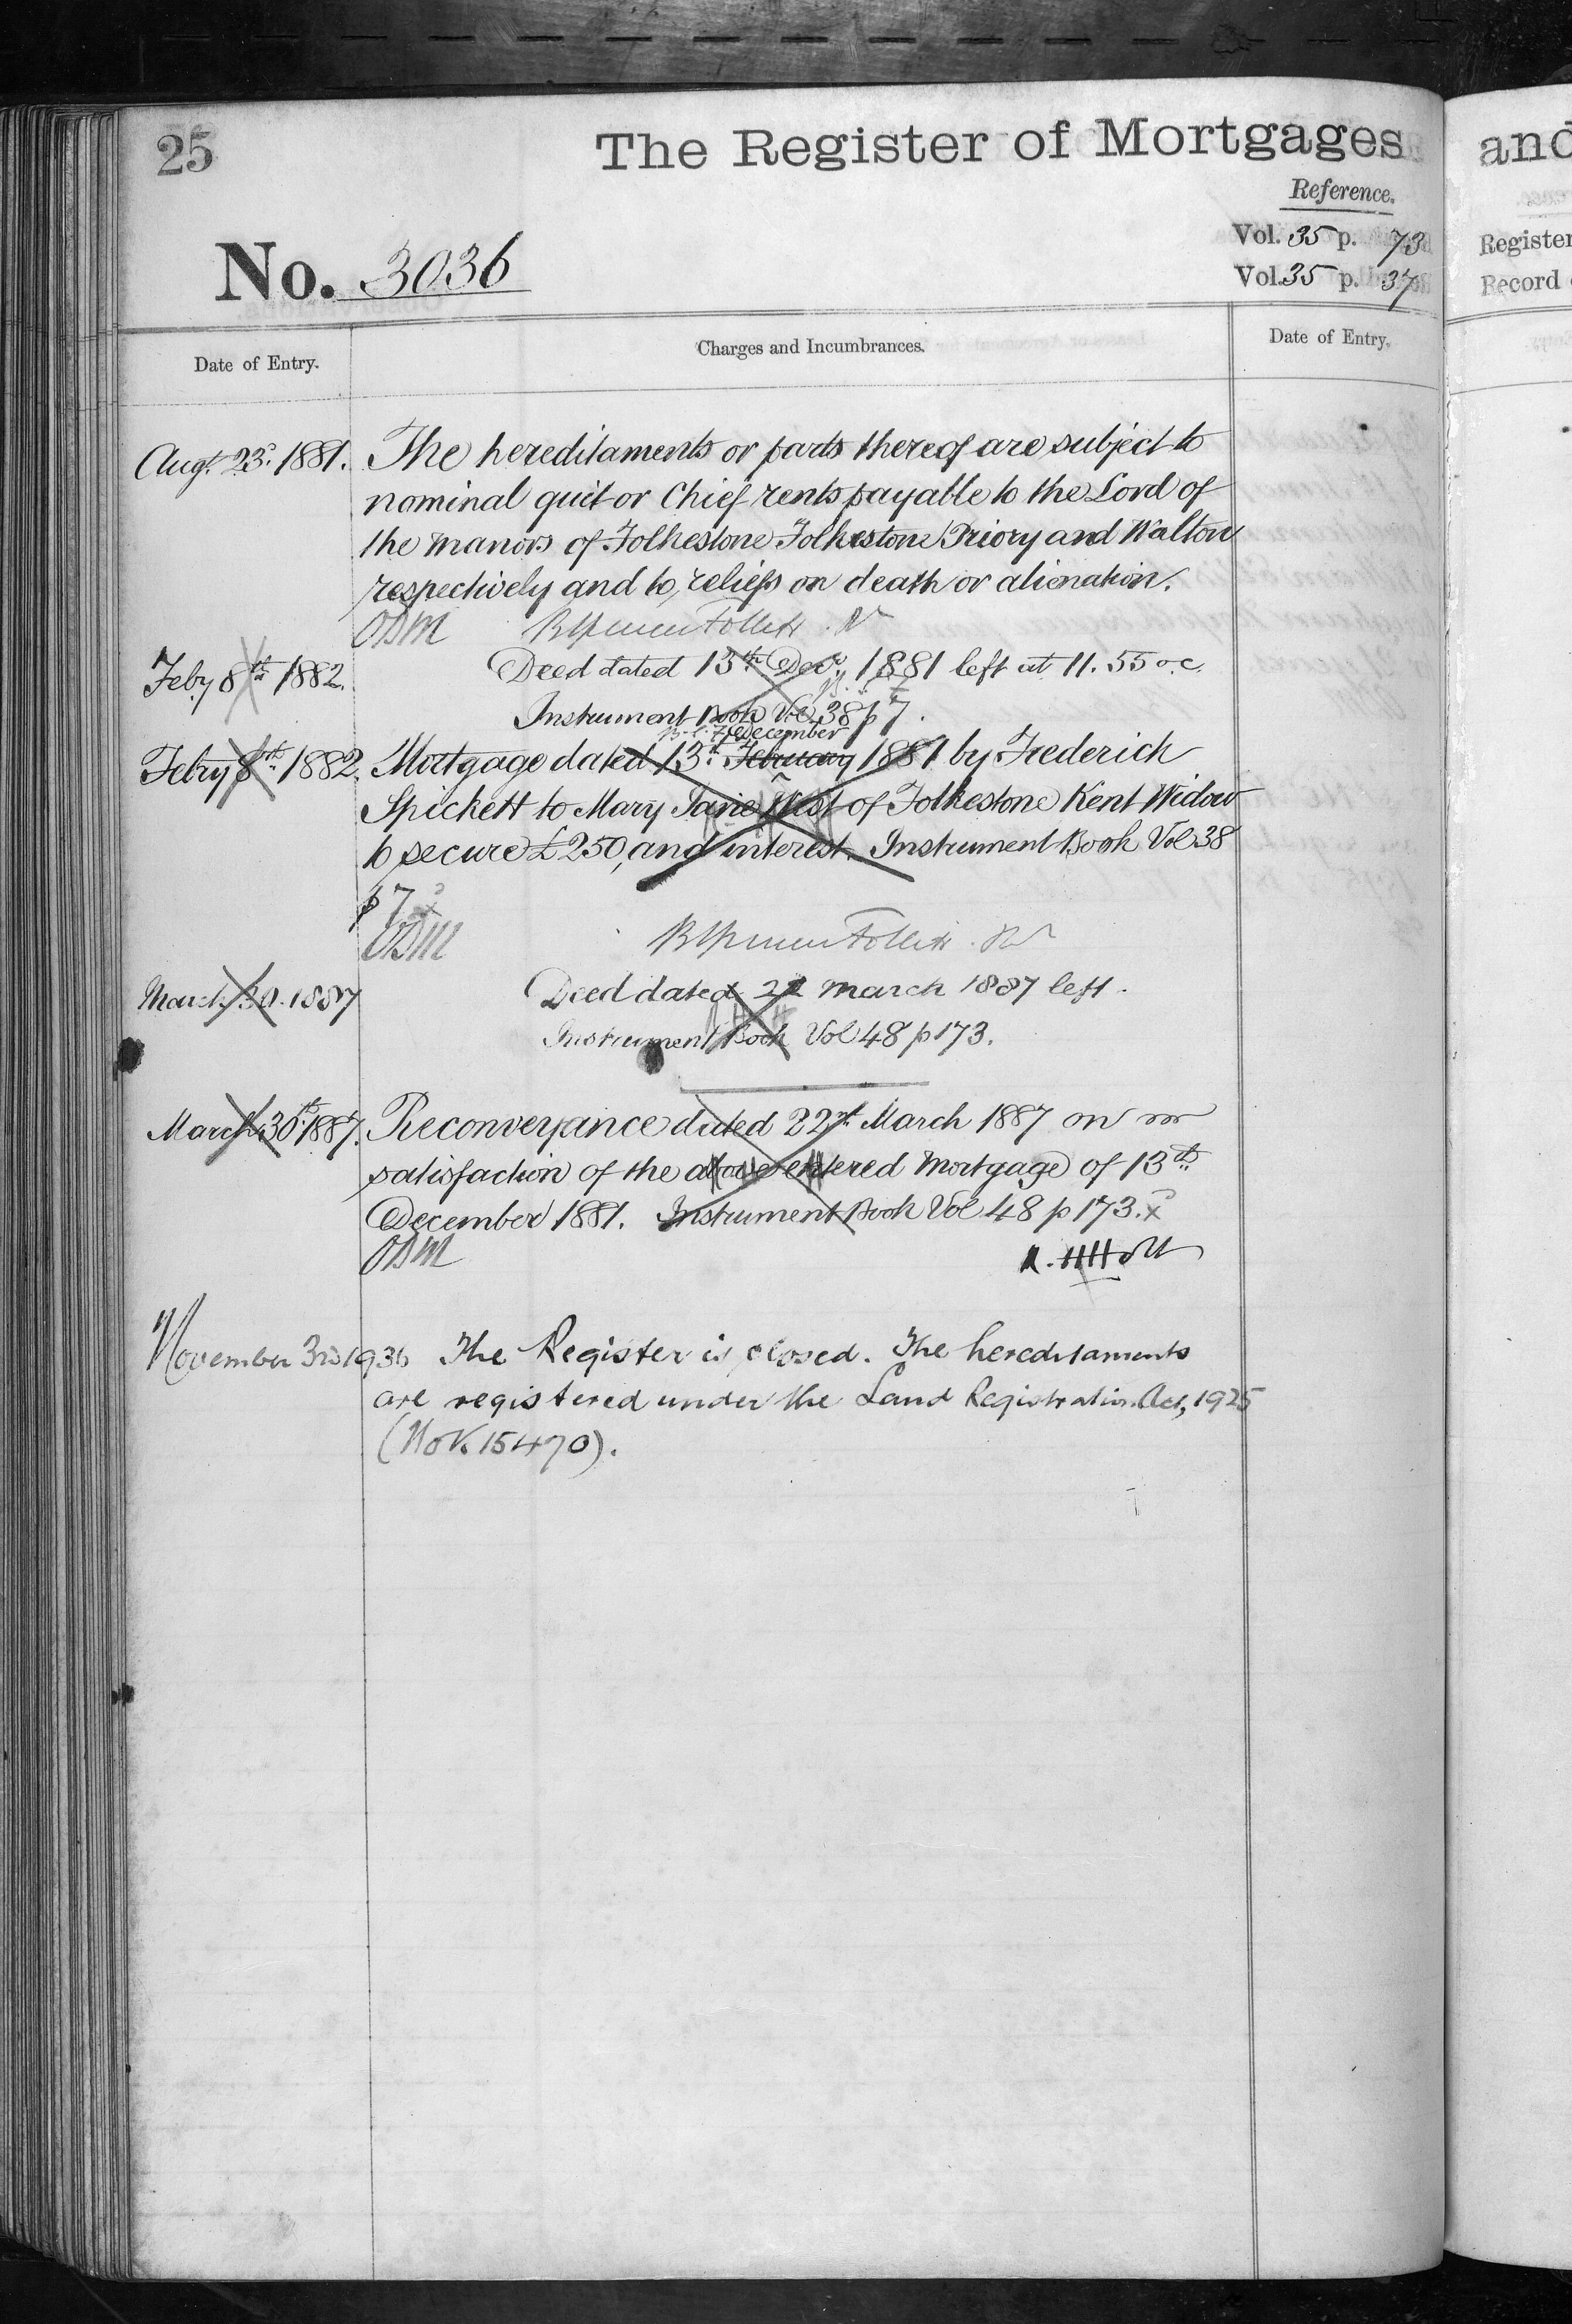 25
The Register of Mortgages
and
Reference.
Vol. 35 p. 73
Register
No. 3036
Vol. 35 p. 37
Record
Date of Entry.
Charges and Incumbrances.
Date of Entry.
Augt. 23. 1881. The hereditaments or parts thereof are subject to
nominal quit or Chief rents payable to the Lord of
the Manors of Folkestone Folkestone Priory and Walton
respectively and to reliefs on death or alienation.
ODM
Feby 8th 1882. Deed dated 13th Decr. 1881 left at 11.55 o.c.
Instrument Book Vol 38 p 7.
December
Febry 8th 1882. Mortgage dated 13th February 1881 by Frederick
Spickett to Mary Jane West of Folkestone Kent Widow
to secure £250, and interest. Instrument Book Vol 38
p 7
ODM
March 30. 1887 Deed dated 22 March 1887 left.
Instrument Book Vol 48 p 173.
March 30th 1887. Reconveyance dated 22nd March 1887 on
satisfaction of the above entered Mortgage of 13th
December 1881. Instrument Book Vol 48 p 173.
ODM
November 3rd 1936 The Register is closed. The hereditaments
are registered under the Land Registration Act, 1925
(No K. 15470).